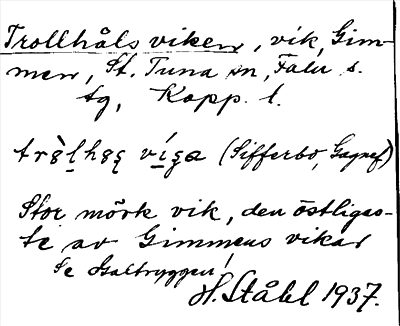 Trollhåls viken, vik, Gim-
men, St. Tuna sn, Falu s.
tg, Kopp. l.
(Sifferbo, Gagnef)
Stor mörk vik, den östligas-
te av Gimmens vikar
Se Saltryggen!
H. Ståhl 1937.